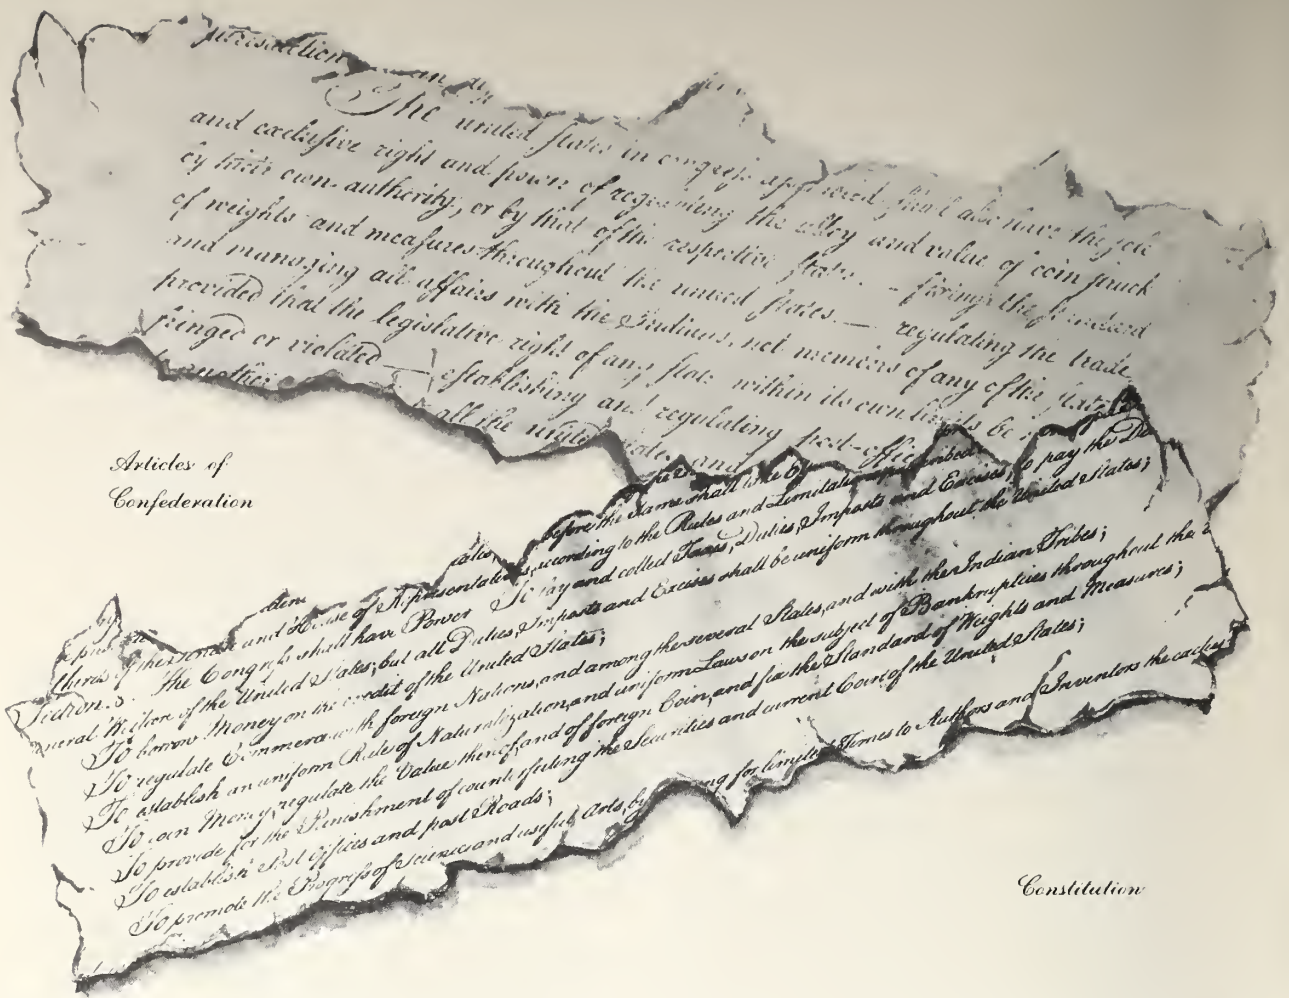 jurisdiction
The united states in congress shall also have the sole
and exclusive right and power of the alloy and value of coin struck
by their own authority, or by that of the respective states. – fixing the
of weights and measures throughout the united states. — regulating the trade
and managing all affairs with the Indians, not members of any of the states,
provided that the legislative right of any state within its own limits be
fringed or violated — establishing and regulating post-offices
another
all the united and
Articles of
Confederation
before the Same shall take
thirds of the Senate and House of Representatives, according to the Rules and Limitations
Section. 8. The Congress shall have Power To lay and collect Taxes, Duties, Imposts and Excises, to pay the De
neral Welfare of the United States; but all Duties, Imposts and Excises shall be uniform throughout the United States;
To borrow Money on the credit of the United States;
To regulate Commerce with foreign Nations, and among the several States, and with the Indian Tribes;
To establish an uniform Rule of Naturalization, and uniform Laws on the subject of Bankruptcies throughout the
To coin Money, regulate the Value thereof, and of foreign Coin, and fix the Standard of Weights and Measures;
To provide for the Punishment of counterfeiting the Securities and current Coin of the United States;
To establish Post Offices and post Roads;
To promote the Progress of Science and useful Arts, by ng for limited Times to Authors and Inventors the
Constitution